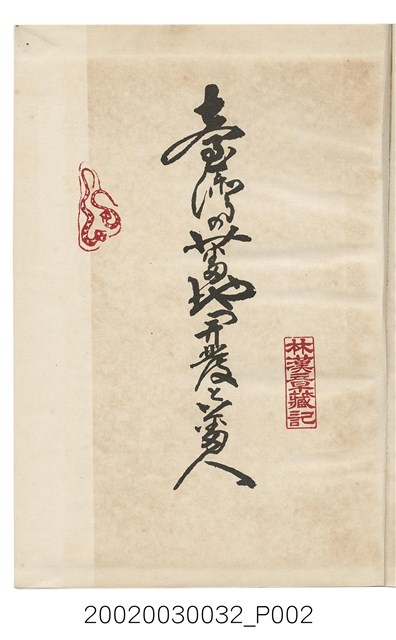 臺灣の蕃地開發と蕃人
林漢章藏記
20020030032_P002